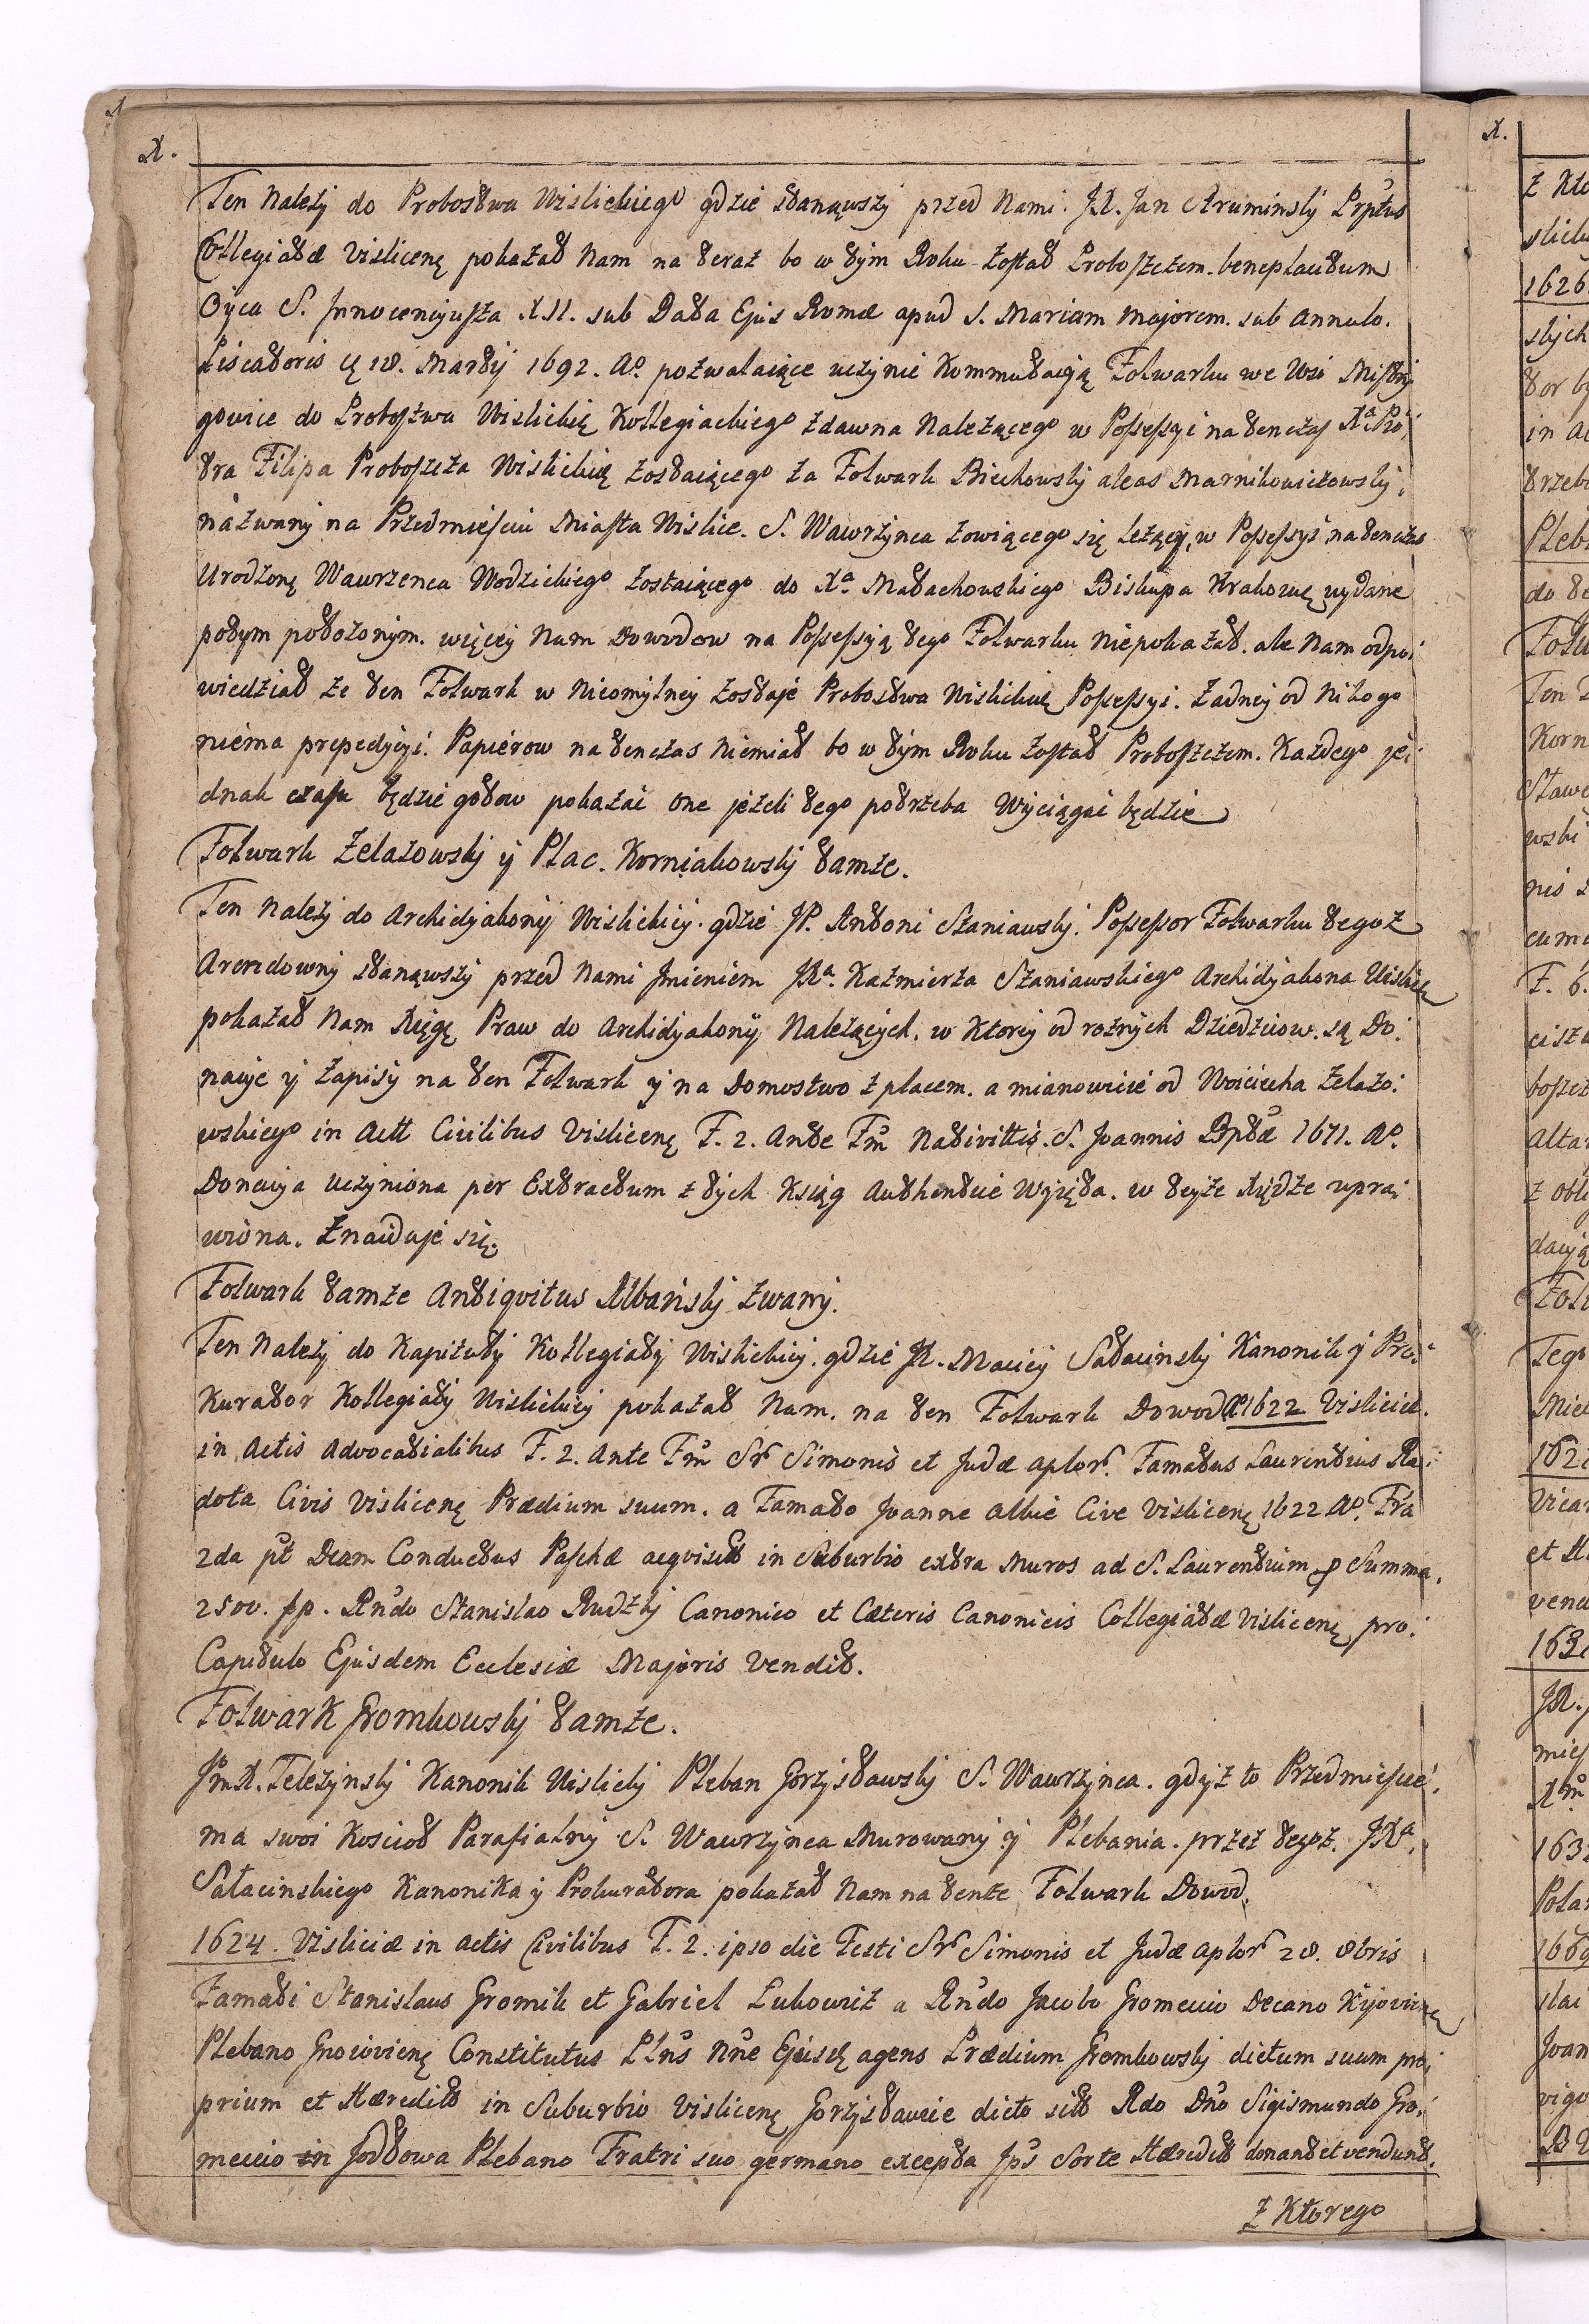 X.
Ten Należy do Probostwa Wislickiego gdzie stanąwszy przed Nami JX. Jan Ptus
Collegiatæ Vislicenę pokazał Nam na teraz bo w tym Roku został Proboszczem. beneplacitum
Oyca S. Innocencyusza XII. sub Data Ejus Romæ apud S. Mariam Majorem. sub Annulo.
Piscatoris 18. Martij 1692. Aº. pozwalaiące uczynic Kommutacyją Folwarku we Wsi
gowice do Probostwa Wislickię Kollegiackiego zdawna Należącego w Possessyi na tenczas
tra Filipa Proboszcza Wislickię zostaiącego za Folwark Biechowsky aleas Marnikowiczowsky,
názwany na Przedmiesciu Miasta Wislice. S. Wawrzynca zowiącego się leżący, w Possessyi na tenczas
Urodzonę Wawrzenca Wodzickiego zostaiącego do Xª. Małachowskiego Biskupa Krakowę wydane
potym położonym. więcey Nam Dowodow na Possessyją tego Folwarku niepokazał. ale Nam odpo:
wiedział że ten Folwark w Nieomylney zostaje Probostwa Wislickię Possessyi. Żadney od Nikogo
niéma prepedycyi. Papiérow na tenczas Niemiał bo w tym Roku został Proboszczem. Każdego je:
dnak czasu będzie gotow pokazac One jeżeli tego potrzeba Wyciągac będzie
Folwark Żelazowsky y Plac. Korniakowsky tamże.
Ten Należy do Archidyakony Wislickiey. gdzie JP. Antoni Staniawsky. Possessor Folwarku tegoż
Arendowny stanąwszy przed Nami Imieniem JXª. Kaźmierza Staniawskiego Archidyakona Wislickię
pokazał Nam Xięgę Praw do Archidyakony Należących. w Ktorey od rożnych Dziedzicow. są Do:
nacye y Zapisy na ten Folwark y na Domostwo z placem. a mianowicie od Woiciecha Żelazo:
wskiego in Actt Civilibus Vislicenę F. 2. Ante Fm Nativittis. S. Joannis Bptæ 1671. Aº.
Donacyja uczyniona per Extractum z tych Ksiąg Authentcie Wyjęta. w teyże Xiędze upra:
wiona. Znaiduje się.
Folwark tamże Antiqvitus Albański zwany.
Ten Należy do Kapituły Kollegiaty Wislickiey. gdzie JX. Maciey Sałacinsky Kanonik y Pro:
Kurator Kollegiaty Wislickiey pokazał Nam. na ten Folwark Dowod 1622 Visliciæ.
in Actis Advocatialibus F. 2. Ante Fm Sr Simonis et Judæ aplor. Famatus Laurentius Ra:
dota Civis Vislicenę Prædium suum. a Famato Joanne Albie Cive Vislicenę 1622 Aº. Fra
2da pt Dcam Conductus Paschæ acqvisitt in Suburbio extra Muros ad S. Laurentium Summa.
2500. fp. Rndo Stanislao Rudzky Canonico et Cæteris Canonicis Collegiatæ Vislicenę pro:
Capitulo Ejusdem Ecclesiæ Majoris Vendit.
Folwark Gromkowsky tamże.
JmX. Teleżynsky Kanonik Wislicky Pleban Gorzysławsky S. Wawrzynca. gdyż to Przedmiescie.
ma swoi Kosciół Parafialny S. Wawrzynca Murowany y Plebania. przez tegoż. JXª.
Sałacinskiego Kanonika y Prokuratora pokazał Nam na tenże Folwark Dowod.
1624. Visliciæ in Actis Civilibus F. 2. ipso die Festi Sr Simonis et Judæ aplor 28. 8bris
Famati Stanislaus Gromik et Gabriel Lukowiz a Rndo Jacobo Gromeccio Decano Kijovienę
Plebano Gnoiovienę Constitutus Plns Nne Ejusdę agens Prædium Gromkowsky dictum suum pro:
prium et Hæreditt in Suburbio Vislicenę Gorzysławcie dicto sitt Rdo Dno Sigismundo Gro:
meccio in Plebano Fratri suo germano excepta Jps Sorte Hæreditt donant et vendunt.
Z Ktorego